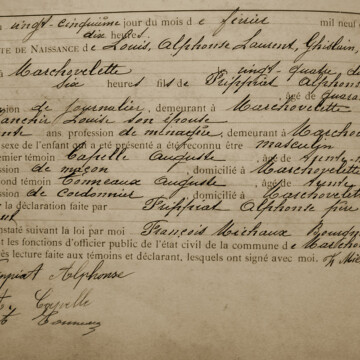 vingt-cinquième jour du mois de février mil neuf
dix heures.
TE DE NAISSANCE de Louis, Alphonse Laurent, Ghislain,
à Marchovelette le vingt-quatre du
six heures fils de Alphonse
âgé de quara
sion de journalier, demeurant à Marchovelette
Louise son épouse
ans profession de ménagère, demeurant à Marchov
sexe de l'enfant qui a été présenté a été reconnu être masculin
emier témoin Capelle Auguste, âgé de
ssion de maçon, domicilié à Marchovelette
ond témoin Auguste, âgé de
sion de cordonnier, domicilié à Marchovelette
la déclaration faite par Alphonse père
nstaté suivant la loi par moi François Michaux
nt les fonctions d'officier public de l'état civil de la commune de Marchov
rès lecture faite aux témoins et déclarant, lesquels ont signé avec moi.
Alphonse
Capelle